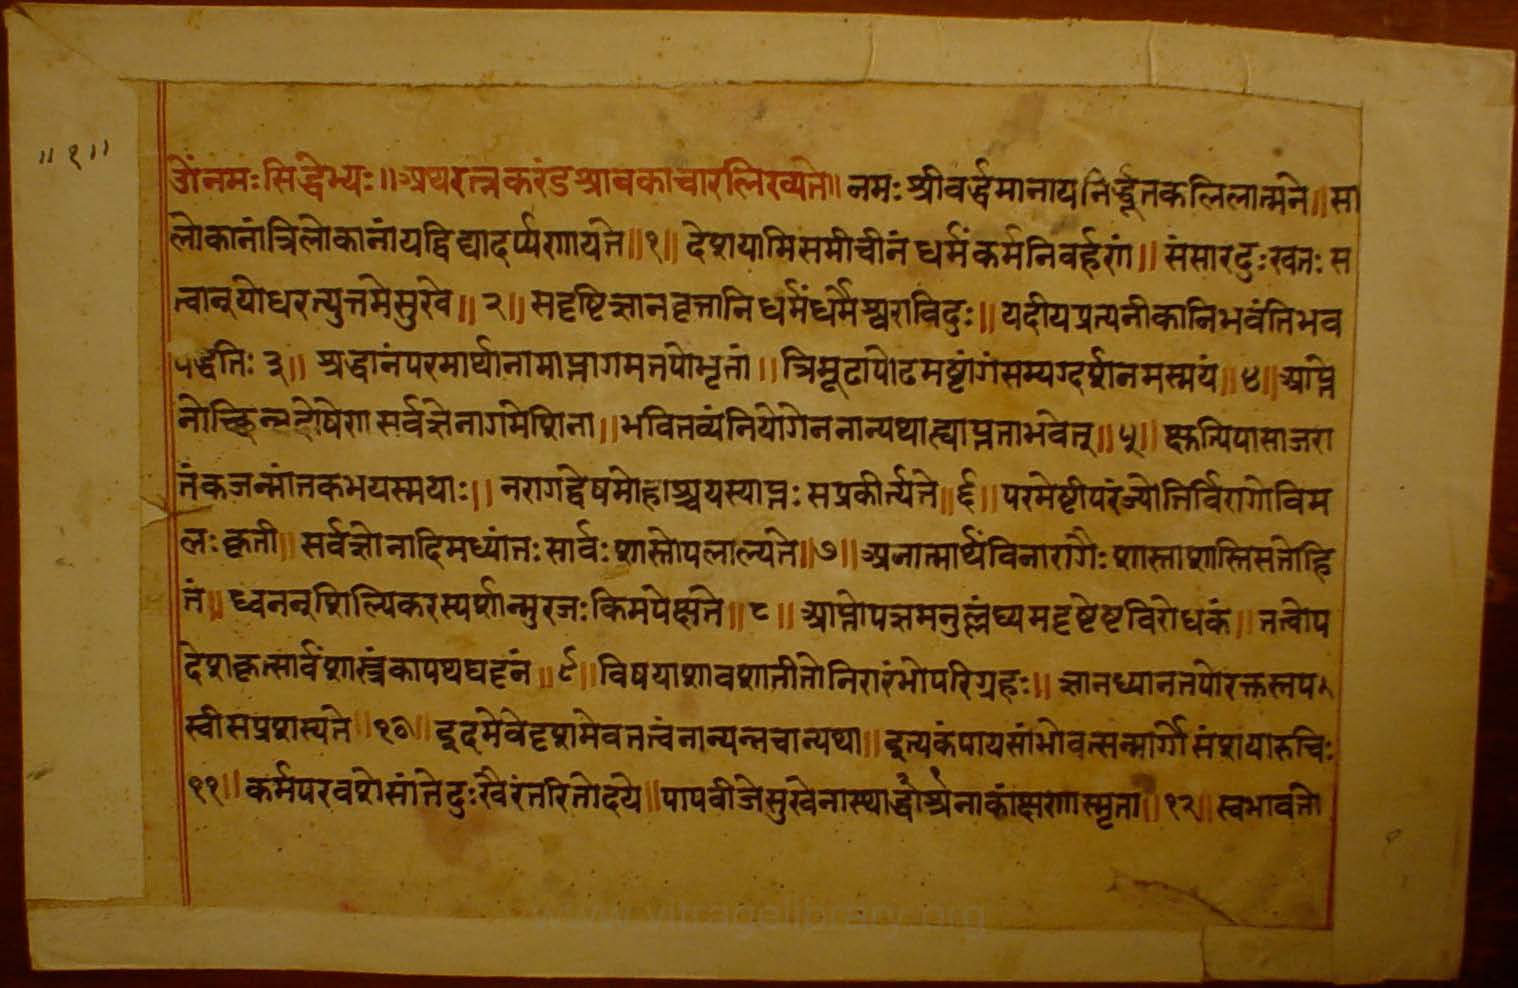 ॥१॥
ॐनमःसिद्धेभ्यः॥अथरत्नकरंडश्रावकाचारलिख्यते॥ नमः श्रीवर्द्धमानायनिर्द्धूतकलिलात्मने॥सा
लोकानांत्रिलोकानांयद्विद्यादर्प्पणायते॥१॥ देशयामिसमीचीनं धर्मंकर्मनिवर्हणं॥ संसारदुःखतः स
त्वान्योधरत्युत्तमेसुखे॥ २॥ सदृष्टिज्ञानवृत्तानि धर्मंधर्मैश्वराविदुः॥ यदीयप्रत्यनीकानिभवंतिभव
पद्धतिः ३॥ श्रद्धानंपरमार्थानामाप्तागमतपोभृतां॥ त्रिमूढापोढमष्टांगंसम्यग्दर्शनमस्मयं॥४॥आप्ते
नोच्छिन्नदोषेणसर्वज्ञेनागमेशिना॥भवितव्यंनियोगेननान्यथाह्याप्तताभवेत्॥५॥ क्षुत्पिपासाजरा
तंकजन्मांतकभयस्मयाः॥ नरागद्वेषमोहाश्चयस्याप्तः सप्रकीर्त्यते॥६॥परमेष्टीपरंज्योतिर्विरागोविम
लः कृती॥ सर्वज्ञोनादिमध्यांतः सार्वः शास्तोपलाल्यते॥७॥अनात्मार्थंविनारागैः शास्ताशास्तिसतोहि
तं॥ ध्वनन्शिल्पिकरस्पर्शान्मुरजः किमपेक्षते॥८॥ आप्तोपज्ञमनुल्लंघ्यमदृष्टेष्टविरोधकं॥ तत्वोप
देशकृत्सार्वंशास्त्रंकापथघट्टनं॥९॥विषयाशावशातीतोनिरारंभोपरिग्रहः॥ ज्ञानध्यानतपोरक्तस्तप
स्वीसप्रशस्यते॥१०॥ इदमेवेदृशमेवतत्त्वंनान्यन्नचान्यथा॥इत्यकंपायसांभोवत्सन्मार्गेसंशयारुचिः
११॥ कर्मपरवशेसांतेदुःखैरंतरितोदये॥पापवीजेसुखेनास्थाश्रद्धानाकांक्षणास्मृता॥१२॥स्वभावतो
www.vitragelibrary.org